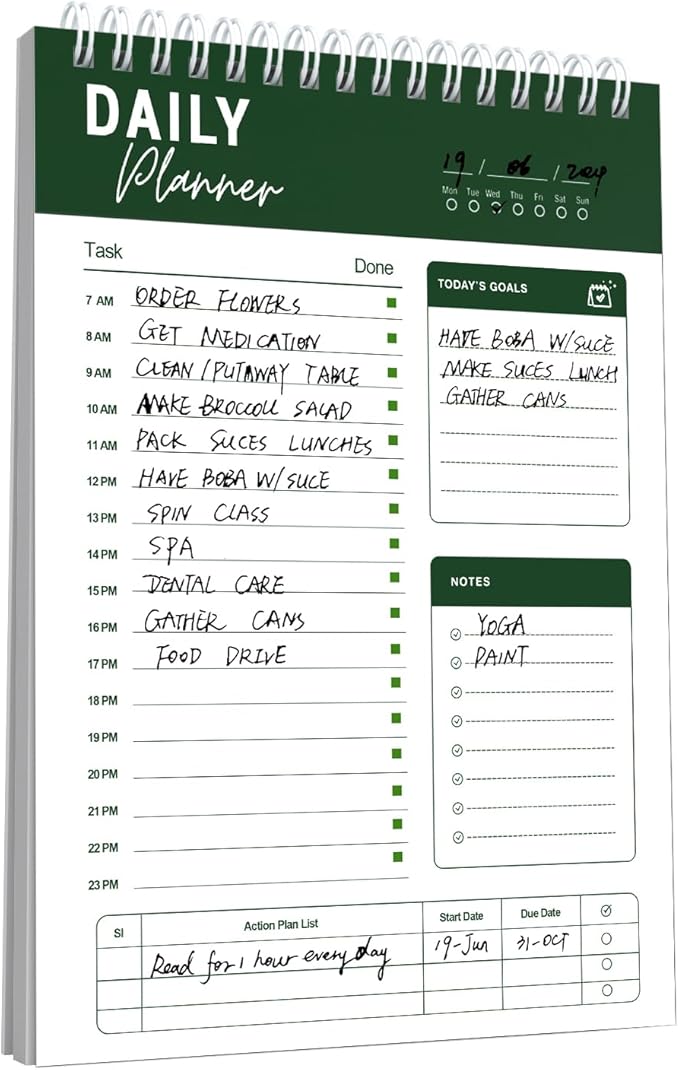 DAILY
Planner
19 / 06 / 2024
Mon Tue Wed Thu Fri Sat Sun
Task Done
7 AM ORDER FLOWERS
8 AM GET MEDICATION
9 AM CLEAN / PUTAWAY TABLE
10 AM MAKE BROCCOLI SALAD
11 AM PACK SLICES LUNCHES
12 PM HAVE BOBA W/ SLICE
13 PM SPIN CLASS
14 PM SPA
15 PM DENTAL CARE
16 PM GATHER CANS
17 PM FOOD DRIVE
18 PM
19 PM
20 PM
21 PM
22 PM
23 PM
TODAY'S GOALS
HAVE BOBA W/SLICE
MAKE SLICES LUNCH
GATHER CANS
NOTES
YOGA
PAINT
SI Action Plan List Start Date Due Date
Read for 1 hour every day 19-Jun 31-OCT